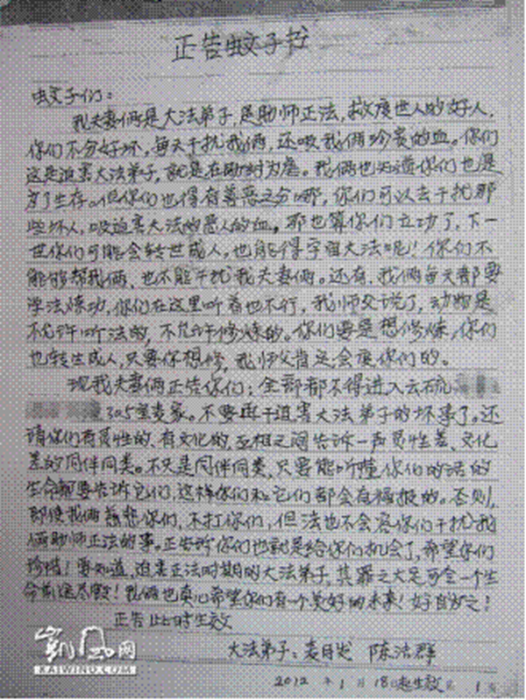 正告蚊子书
蚊子们：
我夫妻俩是大法弟子，是助师正法，救度世人的好人，
你们不分好坏，每天干扰我俩，还吸我俩珍贵的血。你们
这是迫害大法弟子，就是在助纣为虐。我俩也知道你们也是
为了生存。但你们也得有善恶之分哪，你们可以去干扰那
些坏人，吸迫害大法的恶人的血。那也算你们立功了，下一
世你们可能会转世成人，也能得宇宙大法呢！你们不
能够帮我俩，也不能干扰我夫妻俩。还有，我俩每天都要
学法炼功，你们在这里听着也不行，我师父说了，动物是
不允许听法的，不允许修炼的。你们要是想修炼，你们
也转生成人，只要你想修，我师父肯定会度你们的。
现我夫妻俩正告你们：全部都不得进入云硫
305室麦家。不要再干迫害大法弟子的坏事了。还
请你们有灵性的，有文化的，互相之间告诉一声灵性差、文化
差的同伴同类。不只是同伴同类，只要能听懂你们的话的
生命都要告诉它们，这样你们和它们都会有福报的。否则，
即使我俩慈悲你们，不打你们，但法也不会容你们干扰我
俩助师正法的事。正告你们也就是给你们机会了，希望你们
珍惜！要知道，迫害正法时期的大法弟子，其罪之大足可令一个生
命前途尽毁！我俩也真心希望你们有一个美好的未来！好自为之！
正告此时生效
大法弟子：麦日发 陈法群
2012年1月18日起生效
凯风网
KAIWIND.COM